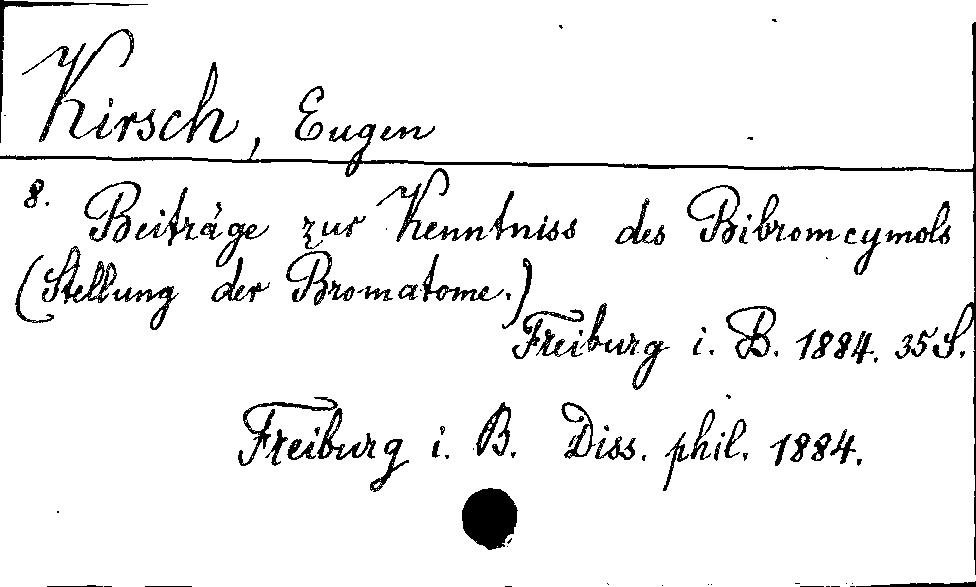 Kirsch, Eugen
8. Beiträge zur Kenntniss des Bibromcymols
(Stellung der Bromatome.)
Freiburg i. B. 1884. 35 S.
Freiburg i. B. Diss. phil. 1884.